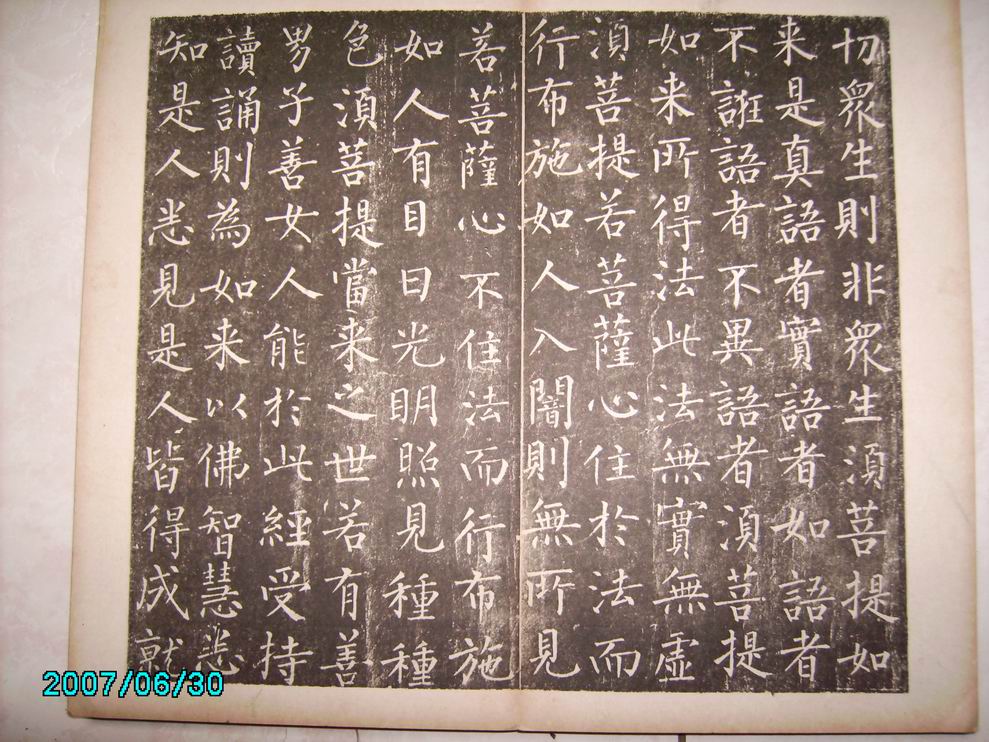 切眾生則非眾生須菩提如
来是真語者實語者如語者
不誑語者不異語者須菩提
如来所得法此法無實無虛
須菩提若菩薩心住於法而
行布施如人入闇則無所見
若菩薩心不住法而行布施
如人有目日光明照見種種
色須菩提當来之世若有善
男子善女人能於此經受持
讀誦則為如来以佛智慧悉
知是人悉見是人皆得成就
2007/06/30